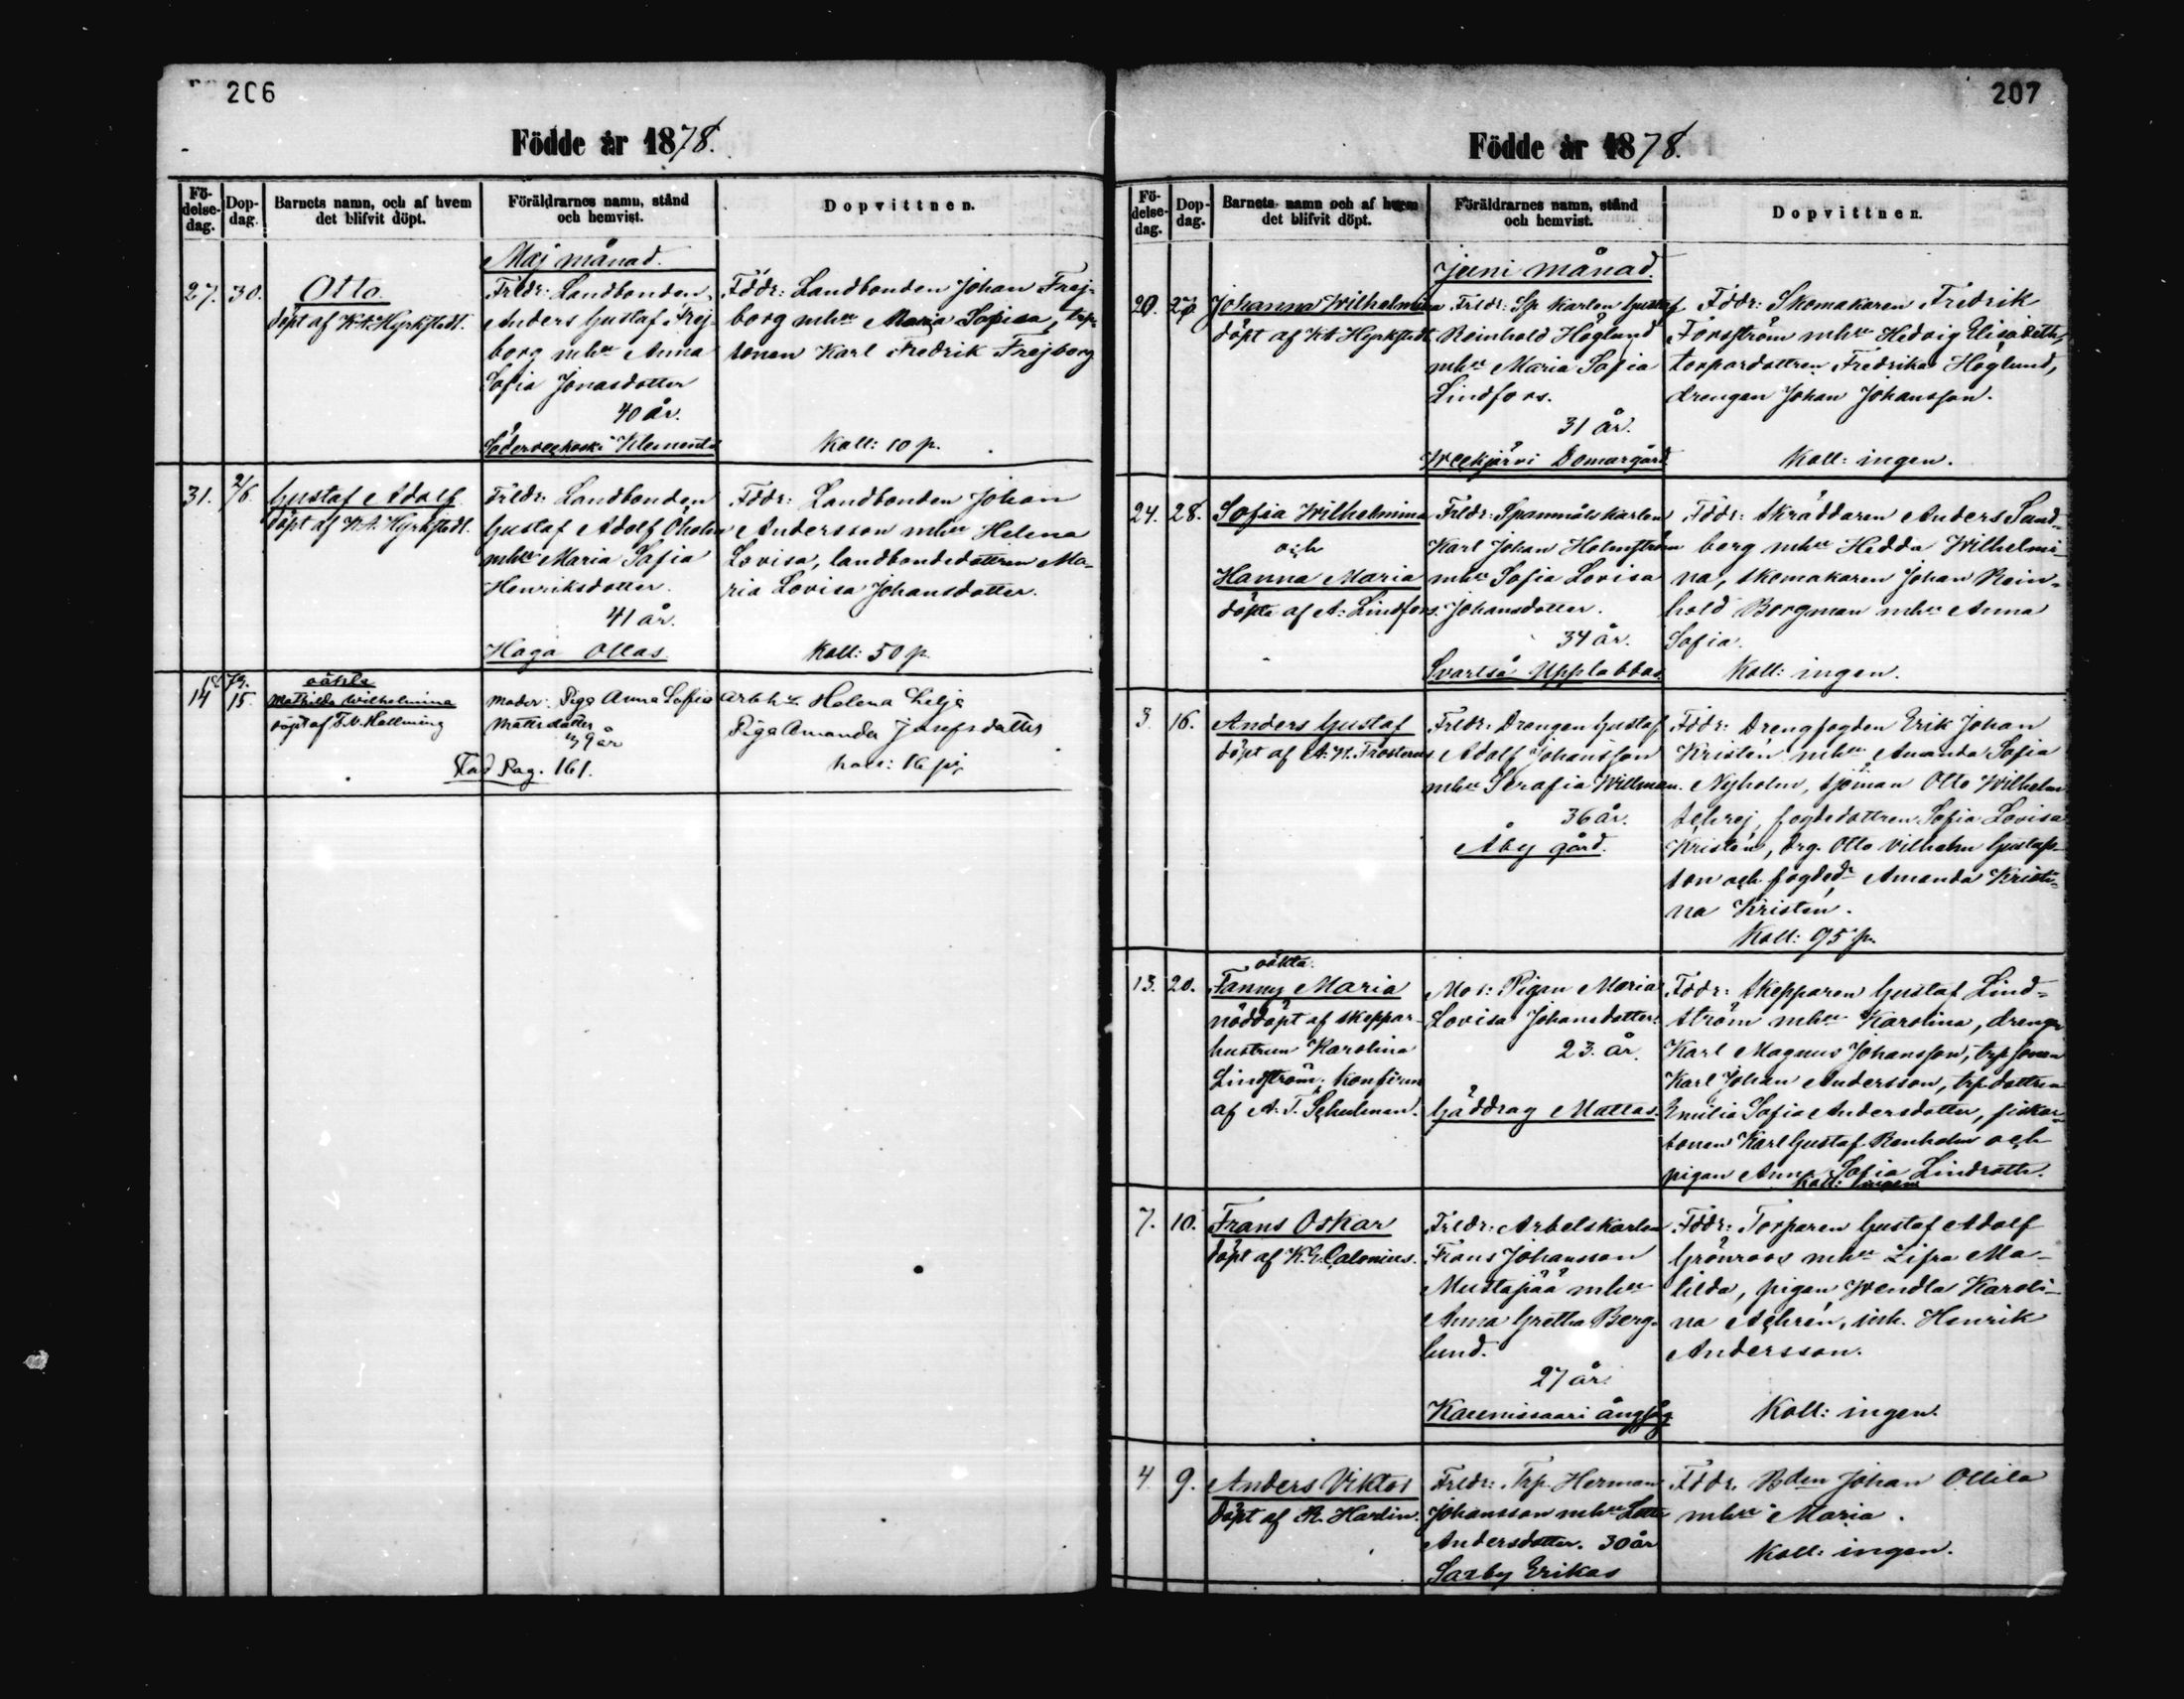 206
Födde år 1878.
Fö-
delse-
dag.
Dop-
dag.
Barnets namn, och af hvem
det blifvit döpt.
Föräldrarnes namn, stånd
och hemvist.
Dopvittnen.
Maj månad.
27. 30.
Otto.
döpt af K.A. Hyrkstedt.
Frldr: Landbonden
Anders Gustaf Frej-
borg mhu Anna
Sofia Jonasdotter
40 år.
Söderveckoski Klements
Fddr: Landbonden Johan Frej-
borg mhu Maria Sofia, trp-
sonen Karl Fredrik Frejborg
Koll: 10 p.
31. 2/6
Gustaf Adolf
döpt af K.A. Hyrkstedt.
Frldr: Landbonden
Gustaf Adolf Öholm
mhu Maria Sofia
Henriksdotter.
41 år.
Haga Ollas
Fddr: Landbonden Johan
Andersson mhu Helena
Lovisa, landbondedottren Ma-
ria Lovisa Johansdotter.
Koll: 50 p.
14 15.
oäkta
Mathilda Wilhelmina
döpt af F.V. Hellming
Moder: Piga Anna Sofia
Mattsdotter
39 år
Pag. 161.
Arbh. Helena Lilja
Piga Amanda Josefsdotter
Koll: 16 p.
207
Födde år 1878.
Fö-
delse-
dag.
Dop-
dag.
Barnets namn och af hvem
det blifvit döpt.
Föräldrarnes namn, stånd
och hemvist.
Dopvittnen.
Juni månad.
20. 27
Johanna Wilhelmina
döpt af K.A. Hyrkstedt
Frldr: Sp. karlen Gustaf
Reinhold Höglund
mhu Maria Sofia
Lindfors.
31 år.
Weckjärvi Domargård
Fddr: Skomakaren Fredrik
Forsström mhu Hedvig Elisabeth,
torpardottren Fredrika Höglund,
drengen Johan Johansson.
Koll: ingen.
24. 28.
Sofia Wilhelmina
och
Hanna Maria
döpta af A. Lindfors.
Frldr: Spannmålskarlen
Karl Johan Holmström
mhu Sofia Lovisa
Johansdotter.
34 år.
Svartså Upplabbas
Fddr: Skräddaren Anders Sand-
borg mhu Hedda Wilhelmi-
na, skomakaren Johan Rein-
hold Borgman mhu Anna
Sofia.
Koll: ingen.
3. 16.
Anders Gustaf
döpt af A.H. Frosterus
Frldr: Drengen Gustaf
Adolf Johansson
mhu Serafia Willman.
36 år.
Åby gård.
Fddr: Drengfogden Erik Johan
Kristén mhu Amanda Sofia
Nyholm, sjöman Otto Wilhelm
fogdedottren Sofia Lovisa
Kristén, drg. Otto Vilhelm Gustafs-
son och fogdedr Amanda Kristi-
na Kristén.
Koll: 95 p.
13. 20.
oäkta.
Fanny Maria
nöddöpt af skeppar-
hustrun Karolina
Lindström; konfirm
af A.T. Schulman.
Mod: Pigan Maria
Lovisa Johansdotter.
23. år.
Gäddrag Mattas.
Fddr: Skepparen Gustaf Lind-
ström mhu Karolina, drengen
Karl Magnus Johansson, trpsonen
Karl Johan Andersson, trpdottren
Emilia Sofia Andersdotter, fiskar-
sonen Karl Gustaf Renholm och
pigan Anna Sofia Lindroth.
Koll: ingen
7. 10.
Frans Oskar
döpt af K.G. Calonius.
Frldr: Arbetskarlen
Frans Johansson
Mustapää mhu
Anna Gretha Berg-
lund.
27 år.
Karenissaari ångsåg
Fddr: Torparen Gustaf Adolf
Grönroos mhu Lisa Ma-
tilda, pigan Wendla Karoli-
na Achrén, inh. Henrik
Andersson.
Koll: ingen.
4. 9.
Anders Viktor
döpt af R. Hardin.
Frldr: Trp. Herman
Johansson mhu Lotta
Andersdotter. 30 år
Sarby Erikas
Fddr. Bden Johan Ollila
mhu Maria.
Koll: ingen.